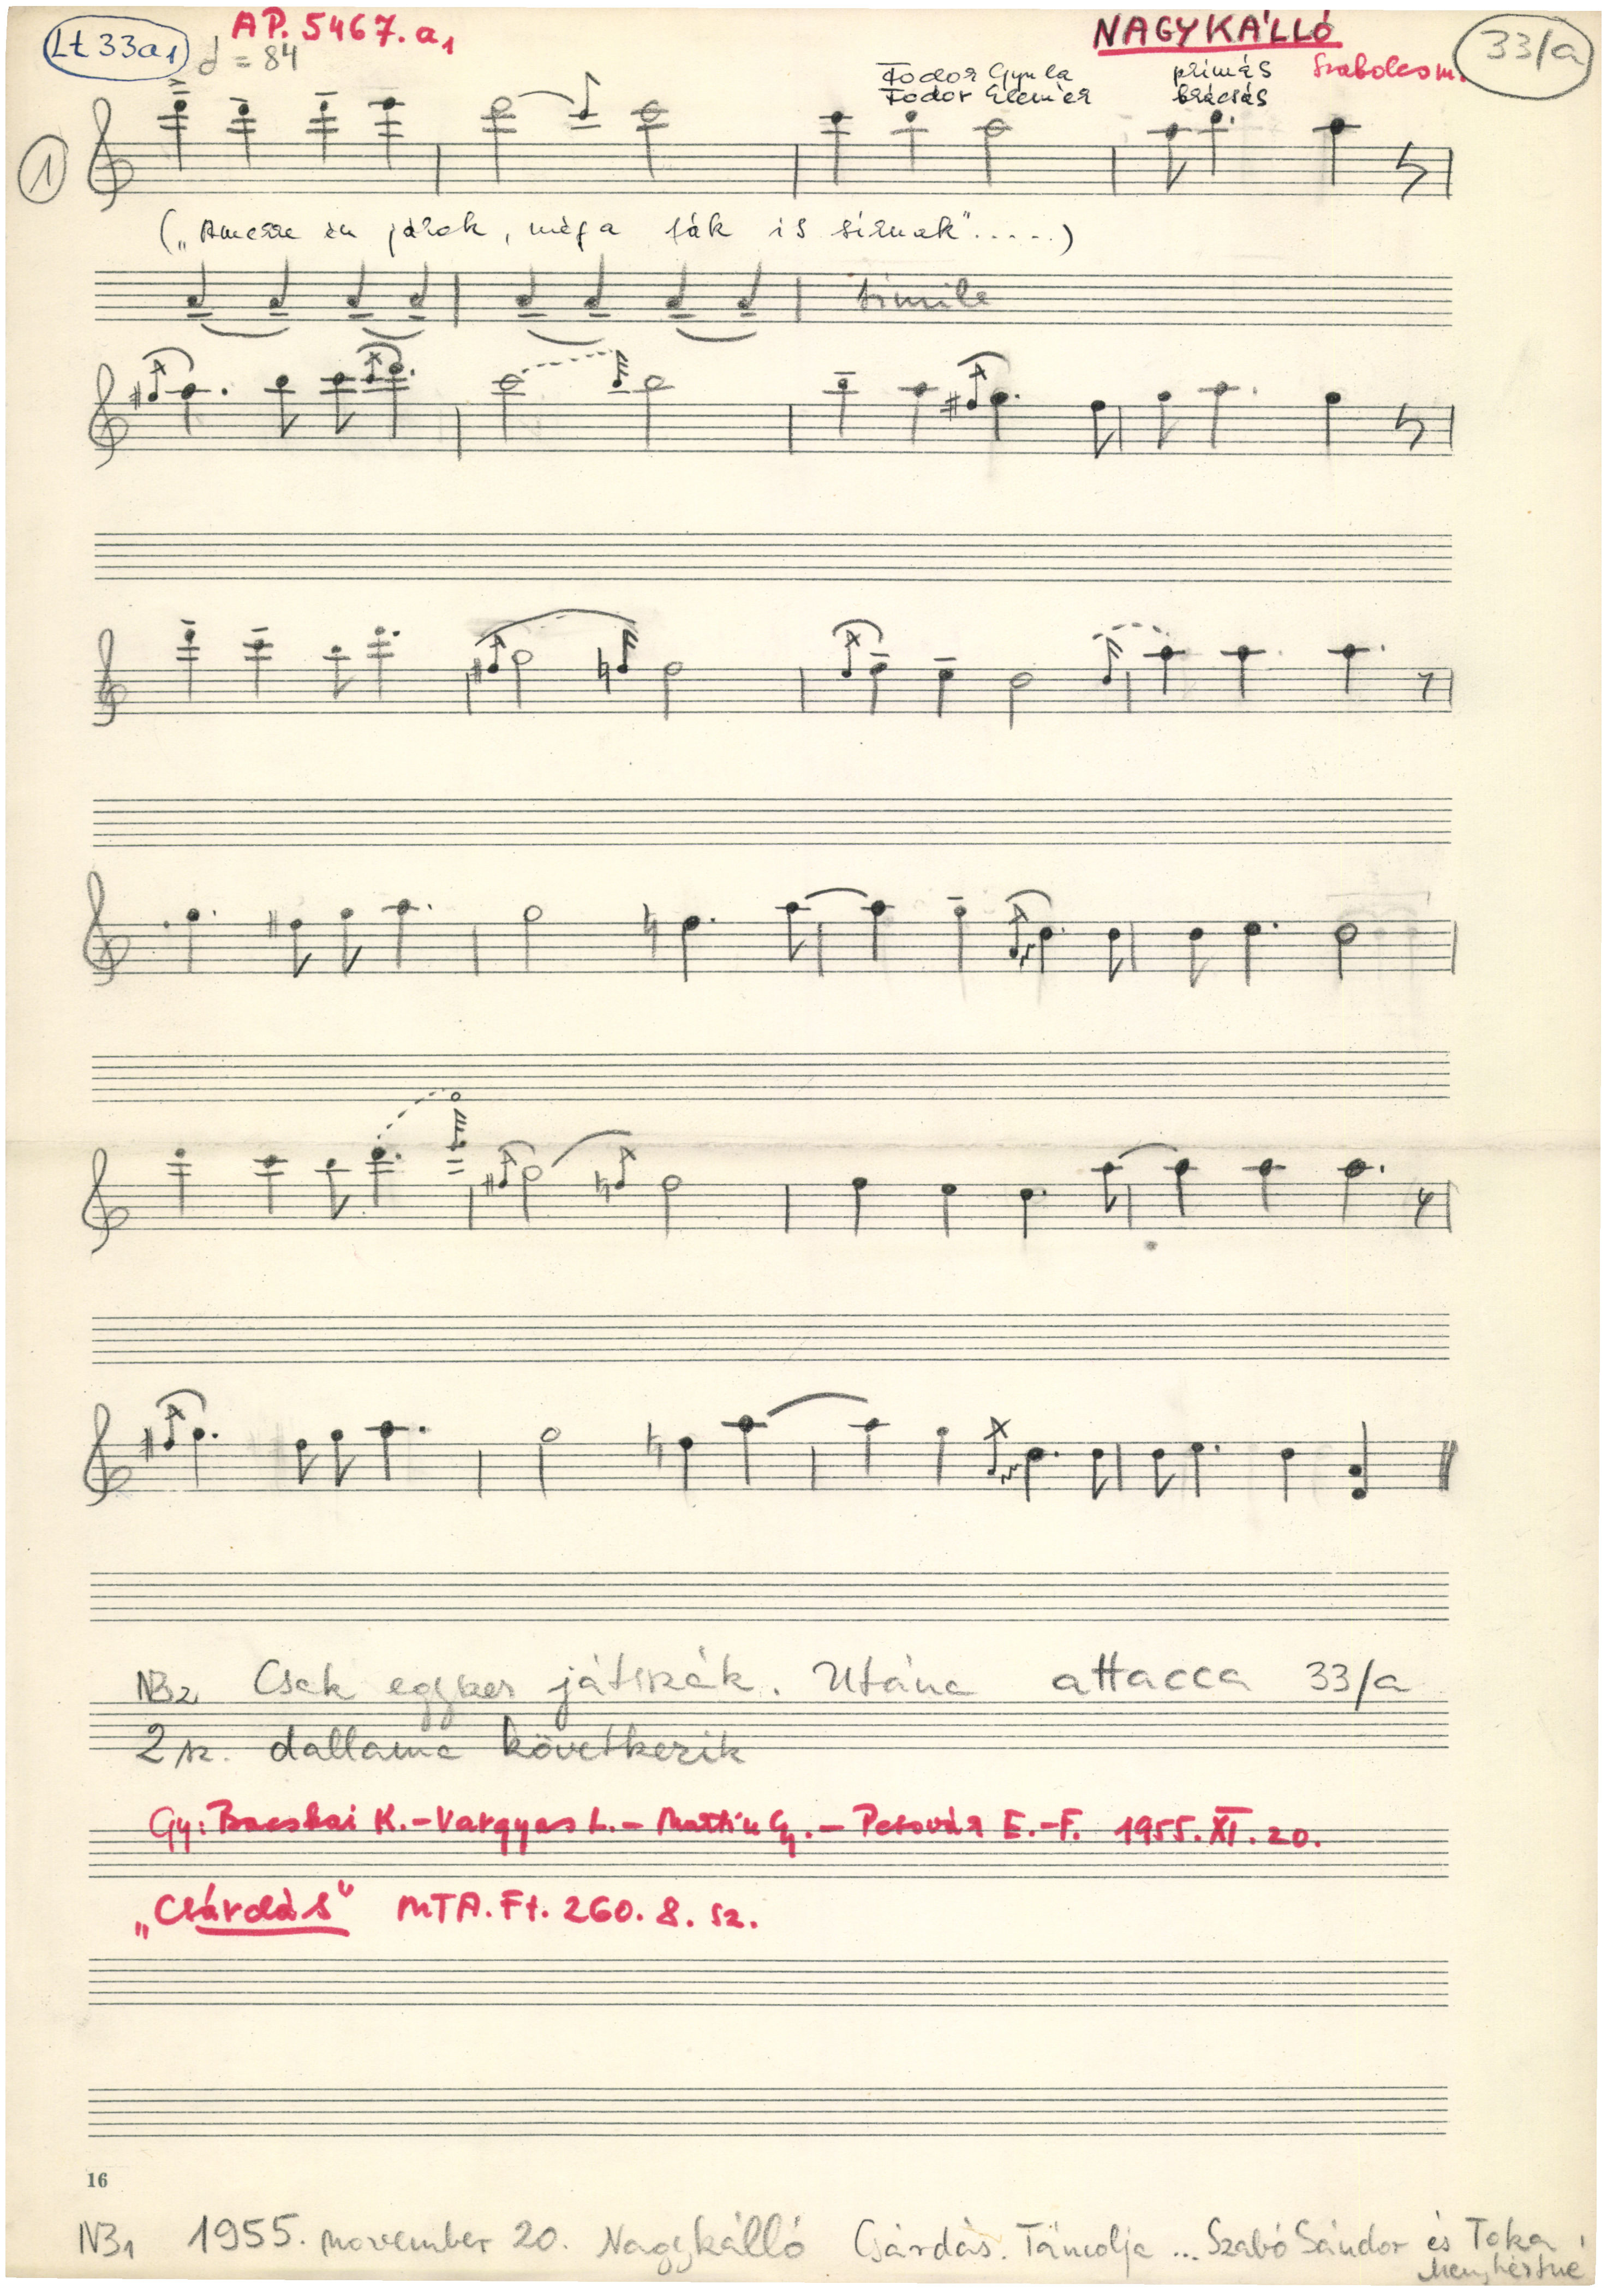 Lt 33a1
AP. 5467. a1
= 84
NAGYKÁLLÓ
Szabolcs m.
33/a
Fodor Gyula prímás
Fodor Elemér brácsás
1
(„Amerre én járok, még a fák is sírnak".....)
simile
NB2 Csak egyszer játszák. Utána attacca 33/a
2 sz. dallama következik
Gy: Bacskai K. - Vargyas L. - Martin Gy. - Pesovár E.-F. 1955. XI. 20.
„Csárdás" MTA. Ft. 260. 8. sz.
16
NB1 1955. november 20. Nagykálló Csárdás. Táncolja ... Szabó Sándor és Toka
Menyhértné